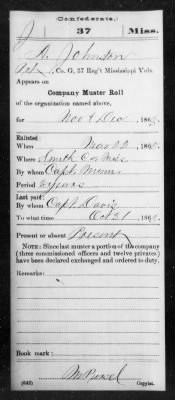 (Confederate.)
J 37 Miss.
A. Johnson
Co. G, 37 Reg't Mississippi Vols.
Appears on
Company Muster Roll
of the organization named above,
for Nov & Dec, 186
Enlisted:
When Mar 22, 186
Where Smith Co Miss.
By whom Capt.
Period 3 years
Last paid:
By whom Capt. Davis
To what time Oct 31, 186
Present or absent Present
NOTE: Since last muster a portion of the company
(three commissioned officers and twelve privates)
have been declared exchanged and ordered to duty.
Remarks:
Book mark:
(642) Copyist.